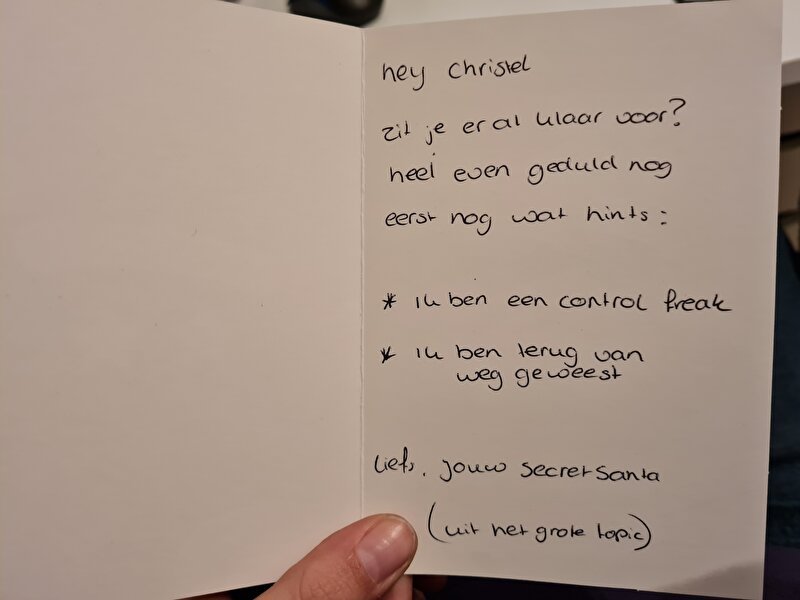 hey Christel
zit je er al klaar voor?
heel even geduld nog
eerst nog wat hints:
* ik ben een control freak
* ik ben terug van
weg geweest
Liefs, jouw secret santa
(uit het grote topic)